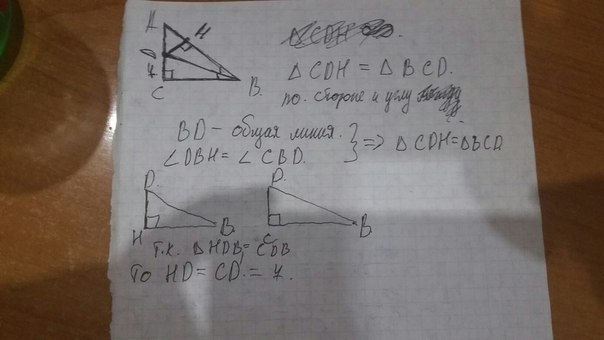 A
H
D
7
C
B.
△ CDH = △ BCD.
по. стороне и углу
BD - общая линия.
∠DBH = ∠CBD. } => △ CDH = △BCD
D.
H
B.
D.
C
B.
т.к. △HDB = CDB
то HD = CD. = 7.